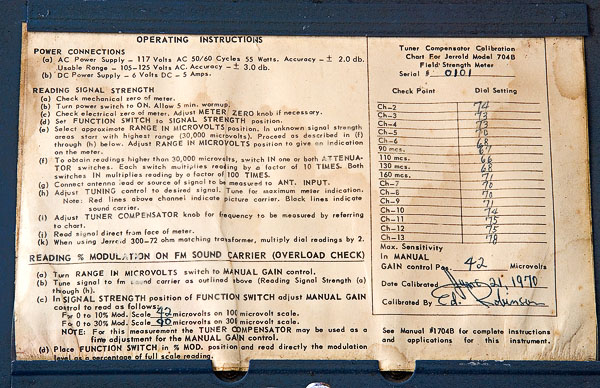 OPERATING INSTRUCTIONS
POWER CONNECTIONS
(a) AC Power Supply - 117 Volts AC 50/60 Cycles 55 Watts. Accuracy - ± 2.0 db.
Usable Range - 105-125 Volts AC. Accuracy - ± 3.0 db.
(b) DC Power Supply - 6 Volts DC - 5 Amps.
READING SIGNAL STRENGTH
(a) Check mechanical zero of meter.
(b) Turn power switch to ON. Allow 5 min. warmup.
(c) Check electrical zero of meter. Adjust METER ZERO knob if necessary.
(d) Set FUNCTION SWITCH to SIGNAL STRENGTH position.
(e) Select approximate RANGE IN MICROVOLTS position. In unknown signal strength
areas start with highest range (30,000 microvolts). Proceed as described in (f)
through (h) below. Adjust RANGE IN MICROVOLTS position to give an indication
on the meter.
(f) To obtain readings higher than 30,000 microvolts, switch IN one or both ATTENUA-
TOR switches. Each switch multiplies reading by a factor of 10 TIMES. Both
switches IN multiplies reading by a factor of 100 TIMES.
(g) Connect antenna lead or source of signal to be measured to ANT. INPUT.
(h) Adjust TUNING control to desired signal. Tune for maximum meter indication.
Note: Red lines above channel indicate picture carrier. Black lines indicate
sound carrier.
(i) Adjust TUNER COMPENSATOR knob for frequency to be measured by referring
to chart.
(j) Read signal direct from face of meter.
(k) When using Jerrold 300-72 ohm matching transformer, multiply dial readings by 2.
READING % MODULATION ON FM SOUND CARRIER (OVERLOAD CHECK)
(a) Turn RANGE IN MICROVOLTS switch to MANUAL GAIN control.
(b) Tune signal to fm sound carrier as outlined above (Reading Signal Strength (a)
through (h).
(c) In SIGNAL STRENGTH position of FUNCTION SWITCH adjust MANUAL GAIN
control to read as follows:
For 0 to 10% Mod. Scale 42 microvolts on 100 microvolt scale.
For 0 to 30% Mod. Scale 90 microvolts on 300 microvolt scale.
NOTE: For this measurement the TUNER COMPENSATOR may be used as a
fine adjustment for the MANUAL GAIN control.
(d) Place FUNCTION SWITCH in % MOD. position and read directly the modulation
level as a percentage of full scale reading.
Tuner Compensator Calibration
Chart For Jerrold Model 704B
Field Strength Meter
Serial # 0101
Check Point Dial Setting
Ch-2 74
Ch-3 73
Ch-4 73
Ch-5 70
Ch-6 68
90 mcs. 67
110 mcs. 66
130 mcs. 68
160 mcs. 71
Ch-7 70
Ch-8 70
Ch-9 71
Ch-10 74
Ch-11 75
Ch-12 75
Ch-13 78
Max. Sensitivity
In MANUAL
GAIN control Pos. 42 Microvolts
Date Calibrated 21, 1970
Calibrated By Ed. Robinson
See Manual #1704B for complete instructions
and applications for this instrument.